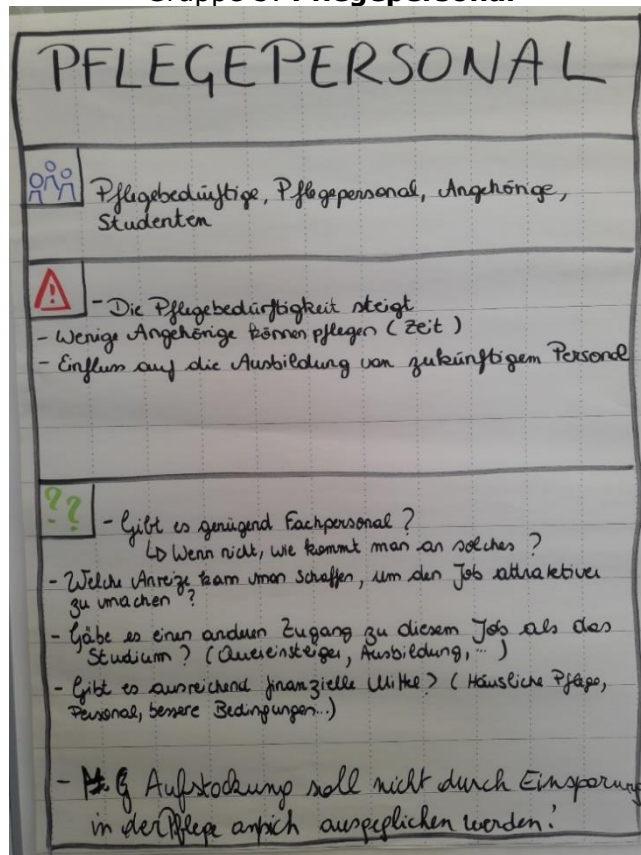 Gruppe 3: Pflegepersonal
PFLEGEPERSONAL
Pflegebedürftige, Pflegepersonal, Angehörige,
Studenten
- Die Pflegebedürftigkeit steigt
- Wenige Angehörige können pflegen (Zeit)
- Einfluss auf die Ausbildung von zukünftigem Personal
??
- Gibt es genügend Fachpersonal?
↳ Wenn nicht, wie kommt man an solches?
- Welche Anreize kann man schaffen, um den Job attraktiver
zu machen?
- Gäbe es einen anderen Zugang zu diesem Job als das
Studium? (Quereinsteiger, Ausbildung, ...)
- Gibt es ausreichend finanzielle Mittel? (Häusliche Pflege,
Personal, bessere Bedingungen...)
- Aufstockung soll nicht durch Einsparung
in der Pflege ansich ausgeglichen werden!